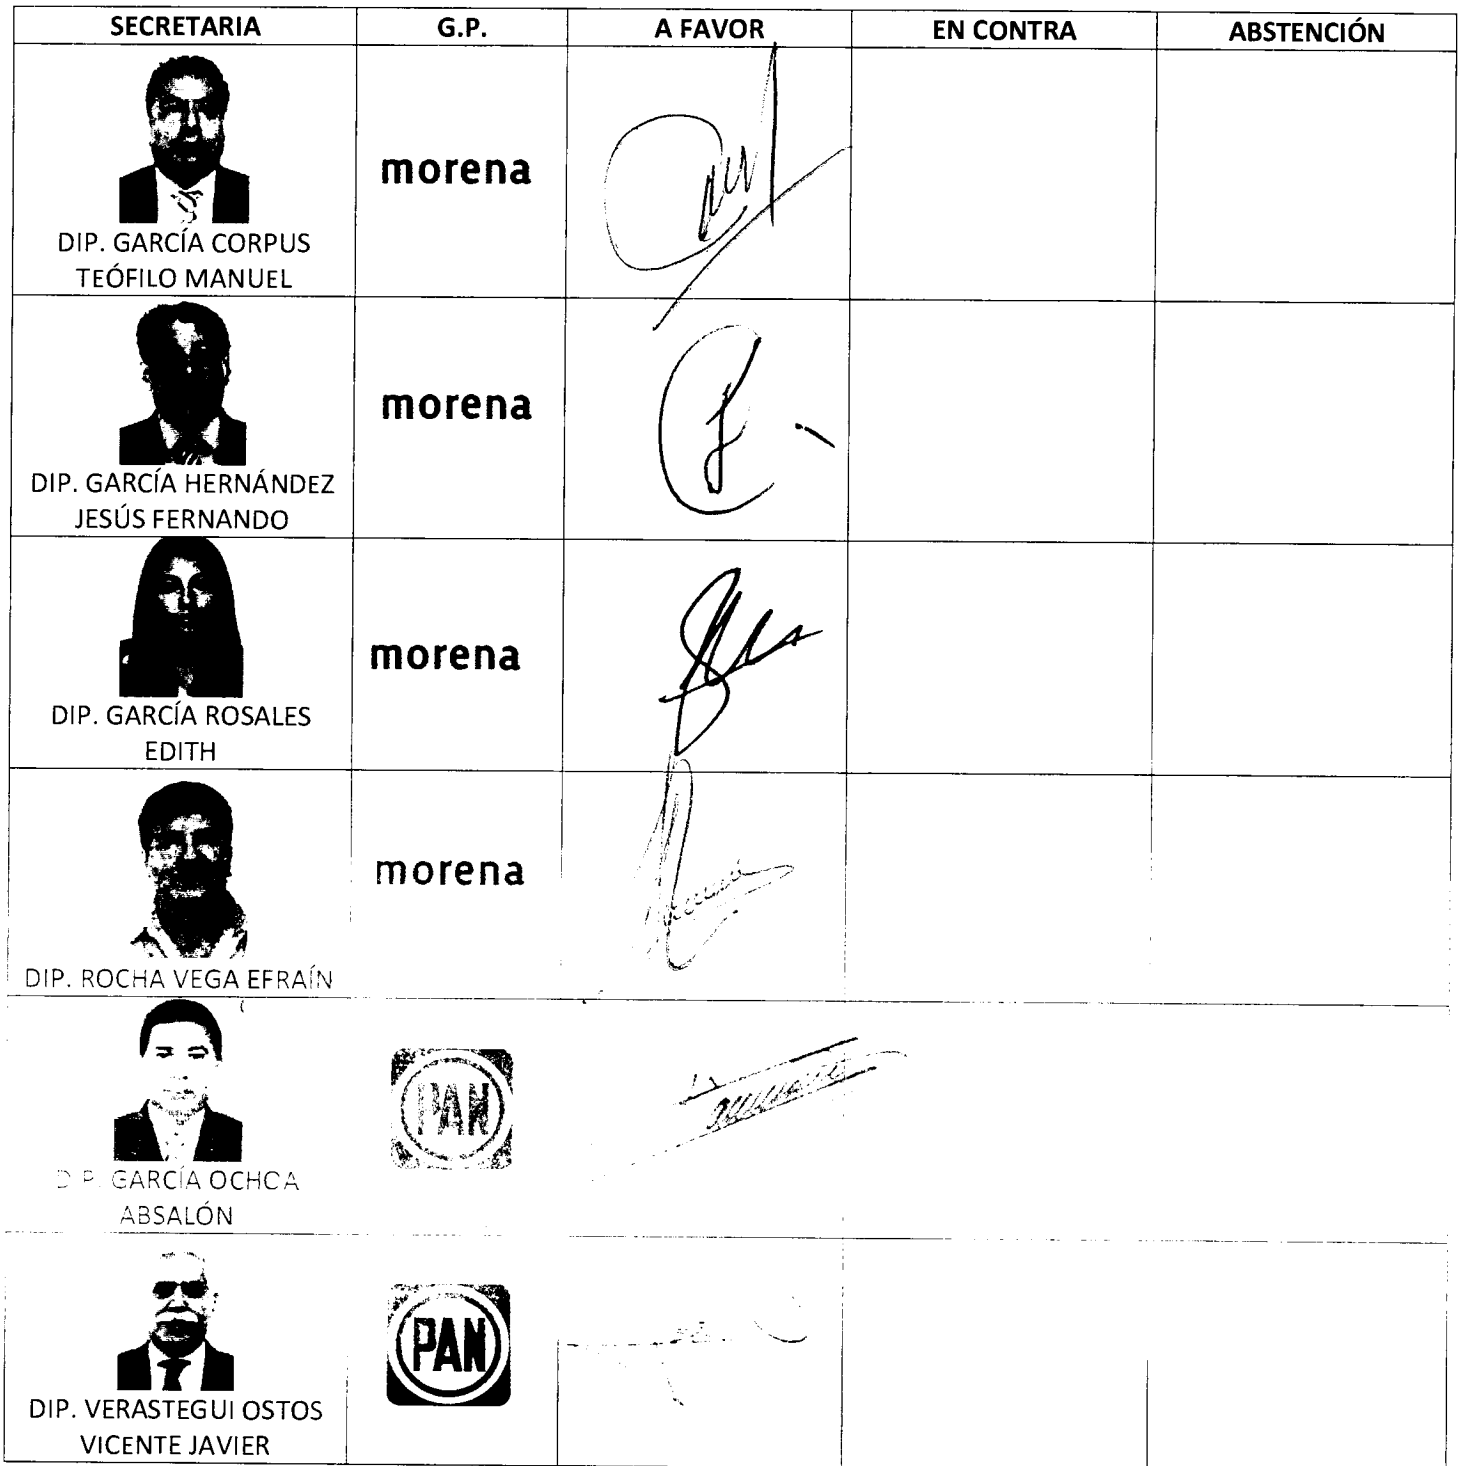 SECRETARIA G.P. A FAVOR EN CONTRA ABSTENCIÓN
morena
DIP. GARCÍA CORPUS
TEÓFILO MANUEL
morena
DIP. GARCÍA HERNÁNDEZ
JESÚS FERNANDO
morena
DIP. GARCÍA ROSALES
EDITH
morena
DIP. ROCHA VEGA EFRAÍN
PAN
DIP. GARCÍA OCHOA
ABSALÓN
PAN
DIP. VERASTEGUI OSTOS
VICENTE JAVIER